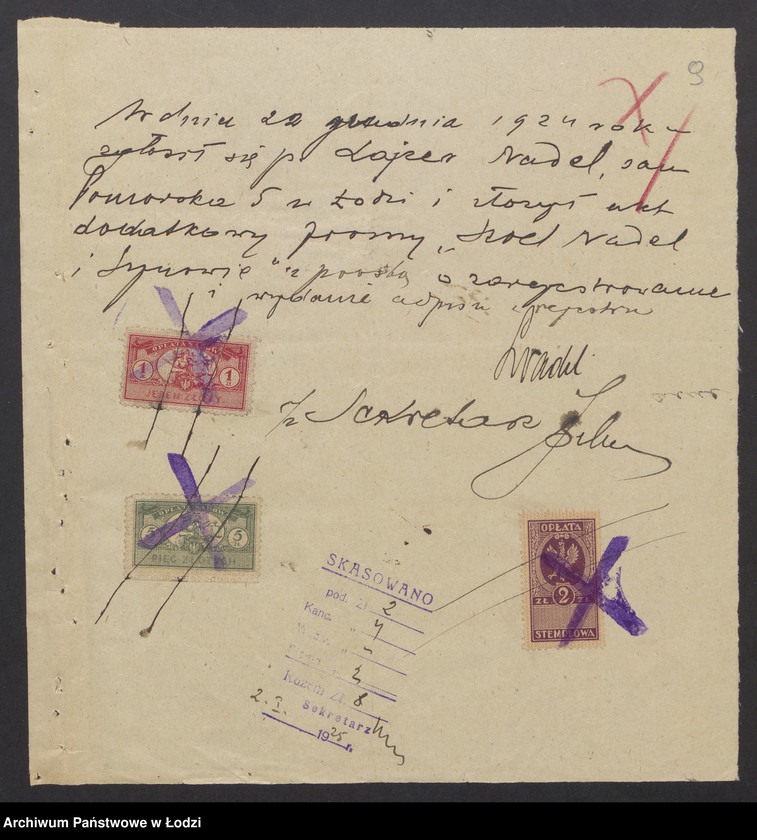 9
W dniu 22 grudnia 1924 roku
zgłosił się p. Lajzer Nadel, zam
Pomorska 5 w Łodzi i złożył akt
dodatkowy firmy „Izoel Nadel
i Synowie" z prośbą o zarejestrowanie
i wydanie odpisu z rejestru
LNadel
Sekretarz
OPŁATA SĄDOWA
1 1
JEDEN ZŁOTY
OPŁATA SĄDOWA
5 5
PIĘĆ ZŁOTYCH
OPŁATA
ZŁ 2 ZŁ
STEMPLOWA
SKASOWANO
pod. Zł 2
Kanc. " 4
Razem Zł. 8
Sekretarz
2. I. 1925 r.
Archiwum Państwowe w Łodzi